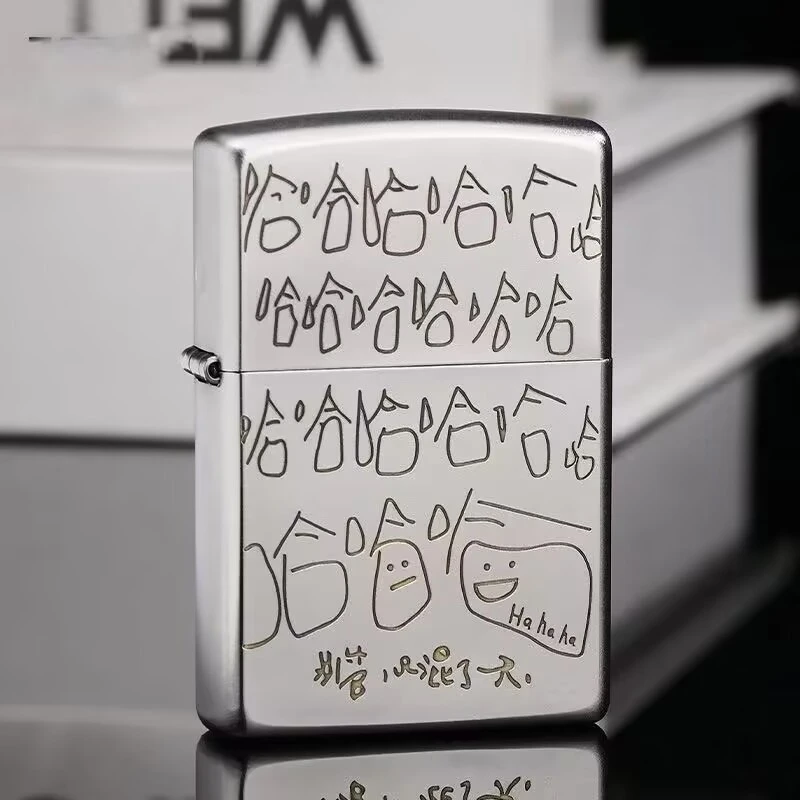 哈哈哈哈哈哈
哈哈哈哈哈哈
哈哈哈哈哈哈
哈哈哈
Ha ha ha
混了一天.